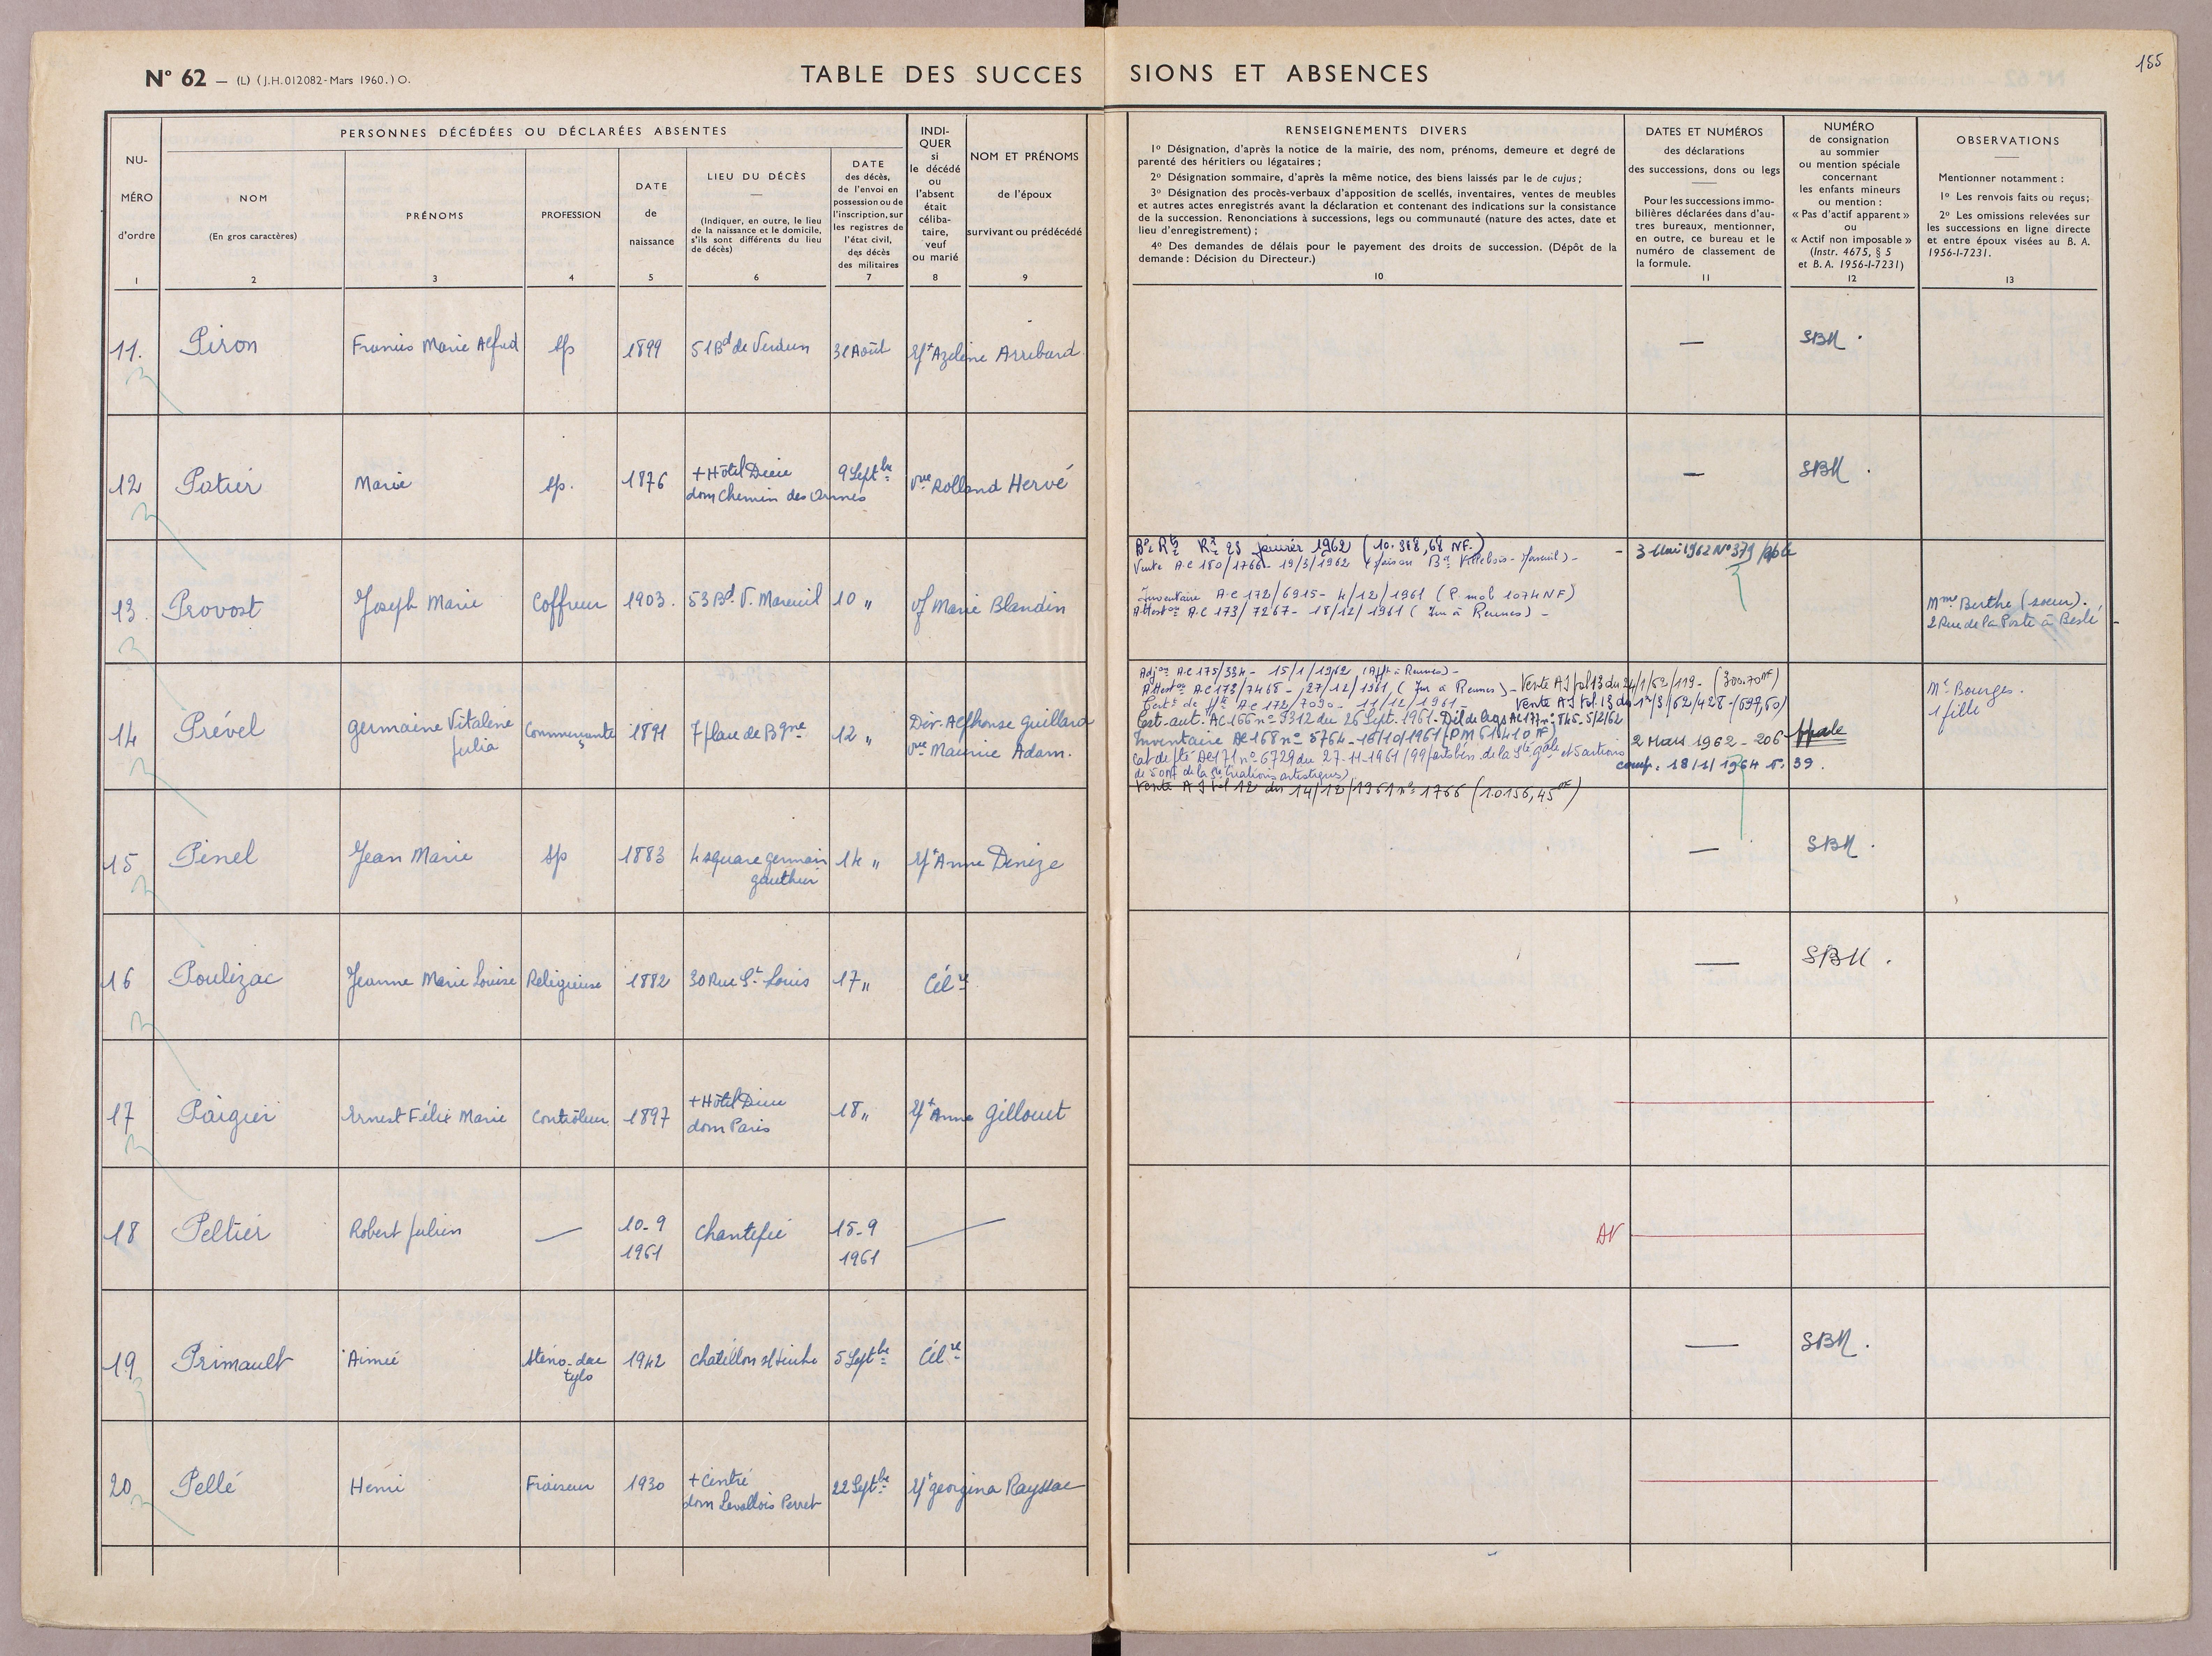 155
N° 62 — (L) (J.H. 012082-Mars 1960.) O.
TABLE DES SUCCESSIONS ET ABSENCES
NU-
MÉRO
d'ordre
1
PERSONNES DÉCÉDÉES OU DÉCLARÉES ABSENTES
NOM
(En gros caractères)
2
PRÉNOMS
3
PROFESSION
4
DATE
de
naissance
5
LIEU DU DÉCÈS
(Indiquer, en outre, le lieu
de la naissance et le domicile,
s'ils sont différents du lieu
de décès)
6
DATE
des décès,
de l'envoi en
possession ou de
l'inscription, sur
les registres de
l'état civil,
des décès
des militaires
7
INDI-
QUER
si
le décédé
ou
l'absent
était
céliba-
taire,
veuf
ou marié
8
NOM ET PRÉNOMS
de l'époux
survivant ou prédécédé
9
RENSEIGNEMENTS DIVERS
1° Désignation, d'après la notice de la mairie, des nom, prénoms, demeure et degré de
parenté des héritiers ou légataires ;
2° Désignation sommaire, d'après la même notice, des biens laissés par le de cujus ;
3° Désignation des procès-verbaux d'apposition de scellés, inventaires, ventes de meubles
et autres actes enregistrés avant la déclaration et contenant des indications sur la consistance
de la succession. Renonciations à successions, legs ou communauté (nature des actes, date et
lieu d'enregistrement) ;
4° Des demandes de délais pour le payement des droits de succession. (Dépôt de la
demande : Décision du Directeur.)
10
DATES ET NUMÉROS
des déclarations
des successions, dons ou legs
Pour les successions immo-
bilières déclarées dans d'au-
tres bureaux, mentionner,
en outre, ce bureau et le
numéro de classement de
la formule.
11
NUMÉRO
de consignation
au sommier
ou mention spéciale
concernant
les enfants mineurs
ou mention :
« Pas d'actif apparent »
ou
« Actif non imposable »
(Instr. 4675, § 5
et B. A. 1956-I-7231)
12
OBSERVATIONS
Mentionner notamment :
1° Les renvois faits ou reçus ;
2° Les omissions relevées sur
les successions en ligne directe
et entre époux visées au B. A.
1956-I-7231.
13
11. Piron Francis Marie Alfred sp 1899 51 Bd de Verdun 31 Août Azeline Arribard — SBM.
12 Patier Marie sp. 1876 + Hôtel Dieu 9 Septbre Vve Rolland Hervé — SBM.
dom Chemin des Ormes
Vente A.C 180/1766 - 19/3/1962
3 Mai 1962 N° 379
13. Provost Joseph Marie Coffreur 1903. 53 Bd. V. Mareuil 10 " vf Marie Blandin
Inventaire A.C 172/6915 - 4/12/1961 (P. mob 1074 NF)
A.C 173/7267 - 18/12/1961 (Im à Rennes) -
Mme Berthe (soeur).
2 Rue de la Poste à Beslé
14 Prével Germaine Vitaline Julia Commerçante 1891 7 place de Bgne 12 " Div. Alphonse Guillard
Vve Maurice Adam.
A.C 175/334 - 15/1/1962
A.C 173/7468 - 27/12/1961 (Im à Rennes) -
A.C 172/7090 - 11/12/1961 -
AC 166 n° 5312 du 26 Sept. 1961 - Dél de legs
Inventaire AC 168 n° 5764 - 16/10/1961
AC 171 n° 6729 du 27-11-1961
Vente A J vol 12 du 14/12/1961 n° 1766 (10156,45 NF)
2 Mars 1962 - 206
comp. 18/1/1964 n. 39.
Me Bourges.
1 fille
15 Pinel Jean Marie sp 1883 4 square Germain Gauthier 14 " Anne Denize — SBM.
16 Poulizac Jeanne Marie Louise Religieuse 1882 30 Rue St Louis 17 " Célre — SBM.
17 Paigier Ernest Félix Marie Contrôleur 1897 + Hôtel Dieu 18 " Anne Gillouet
dom Paris
18 Peltier Robert Julien — 10-9 1961 Chantepie 15-9 1961 —
19 Primault Aimée sténo-dactylo 1942 5 Septbre Célre — SBM.
20 Pellé Henri Fraiseur 1930 + Centre 22 Septbre Georgina Rayssac
dom Levallois Perret